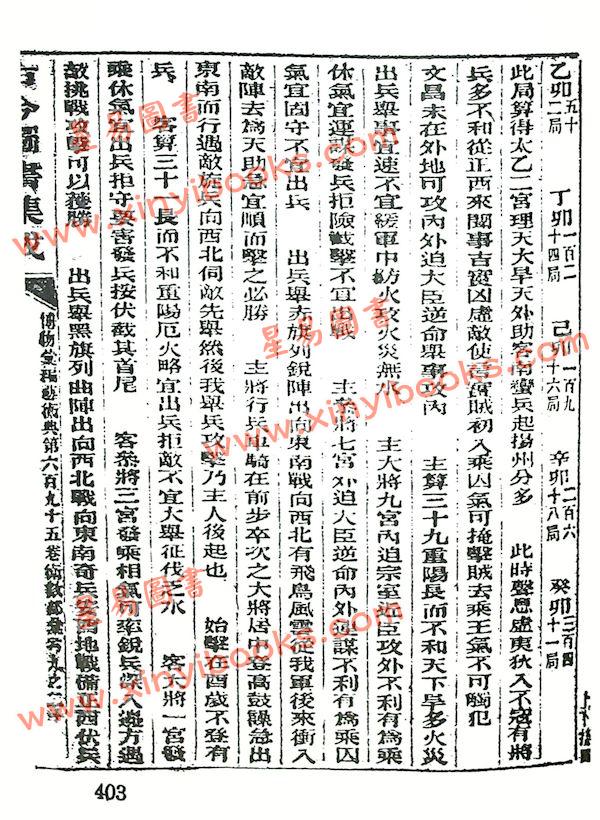 乙卯五十二局　丁卯一百二十四局　己卯一百九十六局　辛卯二百六十八局　癸卯三百四十一局
此局算得太乙二宮理天大旱天外助客南蠻兵起揚州分多　此時聲息虛東狄入不寇有將
兵多不利從正西來聞事吉實凶虛敵使言實賊初入乘囚氣可掩擊賊去乘王氣不可觸犯
文昌未在外地可攻內外迫大臣逆命舉事攻內　主算三十九重陽長而不和天下旱多火災
出兵舉事宜速不宜緩軍中防火攻火災無水　主大將九宮內迫宗室近臣攻外不利有為乘
休氣宜運謀發兵拒險截擊不宜出戰　主參將七宮外迫大臣逆命內外運謀不利有為乘囚
氣宜固守不宜出兵　出兵舉赤旗列銳陣出向東南戰向西北有飛鳥風雲從我軍後來衝入
敵陣去為天助急宜順而擊之必勝　主將行兵車騎在前步卒次之大將居中登高鼓譟急出
東南而行遇敵旌兵向西北伺敵先舉然後我舉兵攻擊乃主人後起也　始擊在酉歲不登有
兵　客算三十一長而不和重陽厄火略宜出兵拒敵不宜大舉征伐乏水　客大將一宮發
乘休氣宜出兵拒守要害發兵按伏截其首尾　客參將三宮發乘相氣可率銳兵深入過方遇
敵挑戰攻擊可以獲勝　出兵舉黑旗列曲陣出向西北戰向東南奇兵要西地戰備正西伏兵
古今圖書集成
博物彙編藝術典第六百九十五卷術數部
403
星易圖書
www.xinyibooks.com
星易圖書
www.xinyibooks.com
星易圖書
www.xinyibooks.com
星易圖書
www.xinyibooks.com